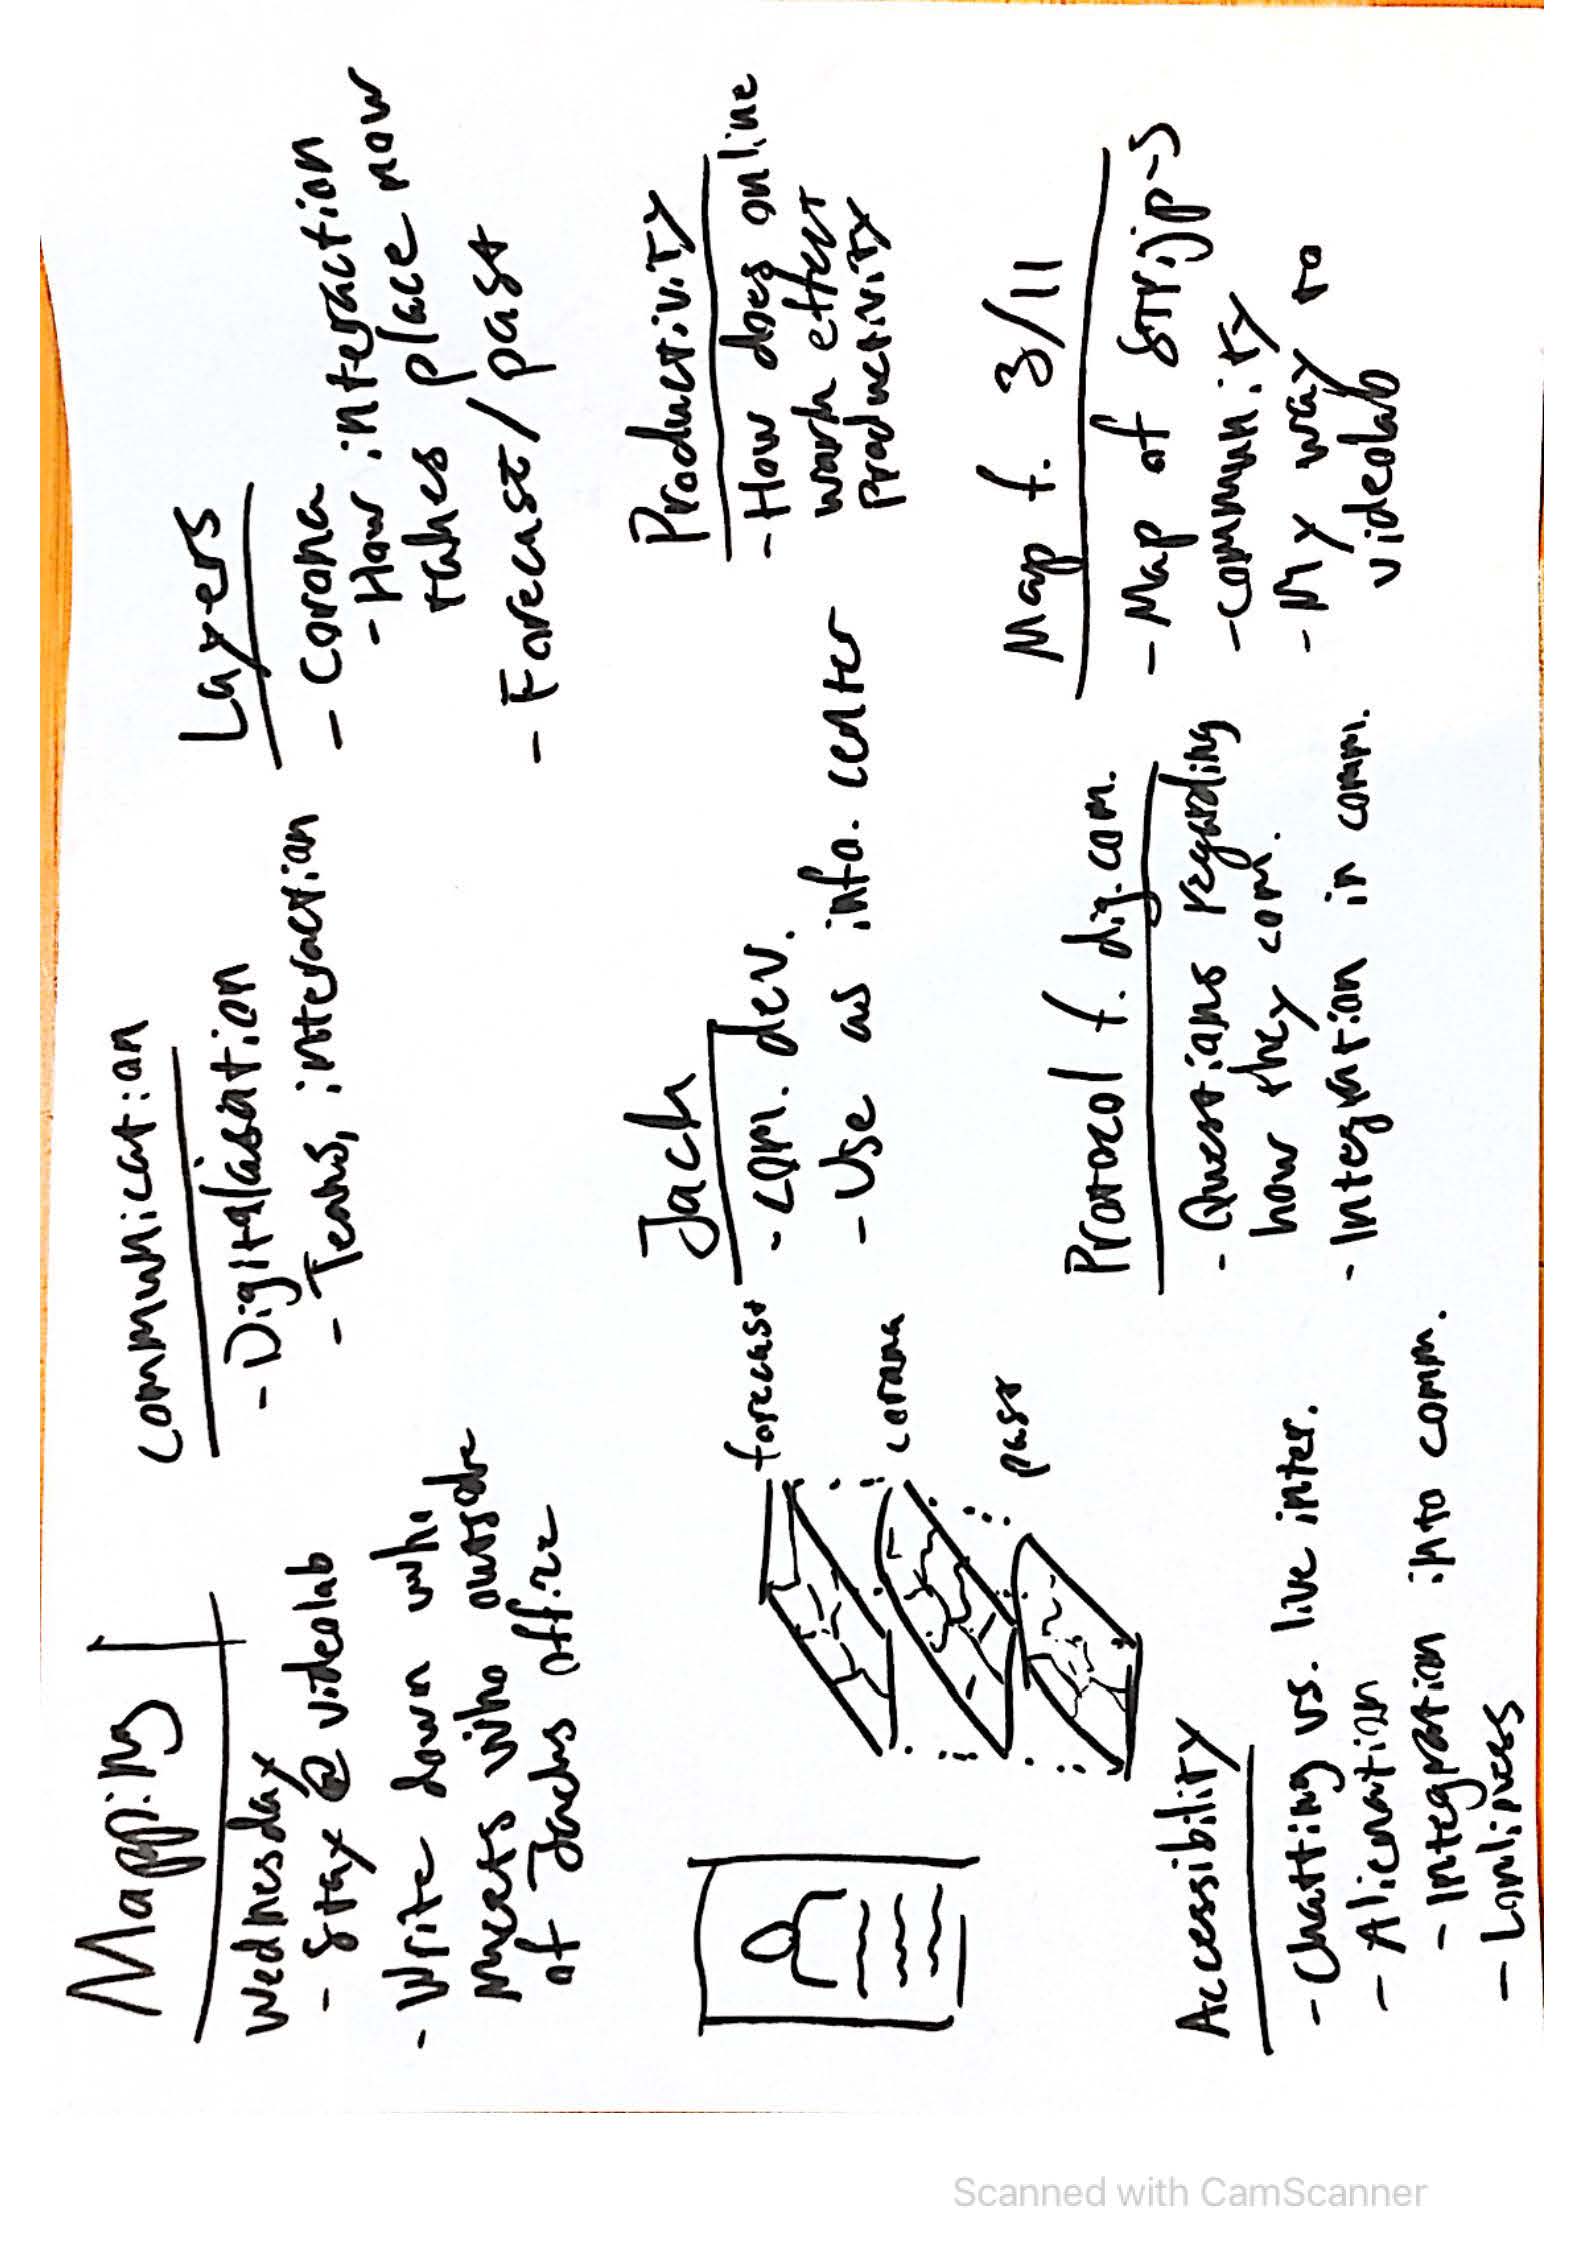 Mapping
Wednesday
- Stay @ videolab
- Write down who
meets who outside
of Jacks office
communication
- Digitalasation
- Teams, interaction
Layers
- corona
- How interaction
takes place now
- Forecast/past
forecast
corona
past
Jack
- com. dev.
- Use as info. center
Productivity
- How does online
work effect
productivity
Accessibility
- Chatting vs. live inter.
- Alienation
- Integration into comm.
- Lonliness
Protocol f. dig. com.
- Questions regarding
how they com.
- Integration in comm.
Map f. 3/11
- Map of Strijp-S
- community
- My way to
videolab
Scanned with CamScanner